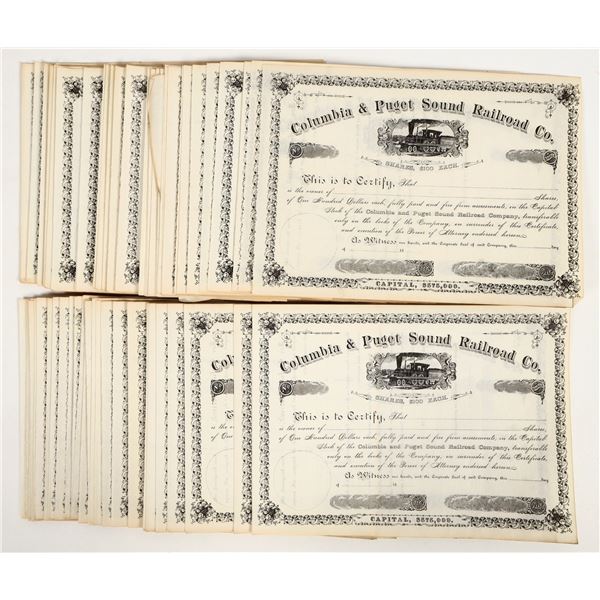 Columbia & Puget Sound Railroad Co.
SHARES, $100 EACH.
This is to Certify, That
is the owner of Shares,
of One Hundred Dollars each, fully paid and free from assessments, in the Capital
Stock of the Columbia and Puget Sound Railroad Company, transferable
only on the books of the Company, on surrender of this Certificate,
and execution of the Power of Attorney endorsed hereon.
As Witness our hands, and the Corporate Seal of said Company, this day
of 18
CAPITAL, $575,000.
Columbia & Puget Sound Railroad Co.
SHARES, $100 EACH.
This is to Certify, That
is the owner of Shares,
of One Hundred Dollars each, fully paid and free from assessments, in the Capital
Stock of the Columbia and Puget Sound Railroad Company, transferable
only on the books of the Company, on surrender of this Certificate,
and execution of the Power of Attorney endorsed hereon.
As Witness our hands, and the Corporate Seal of said Company, this day
of 18
CAPITAL, $575,000.